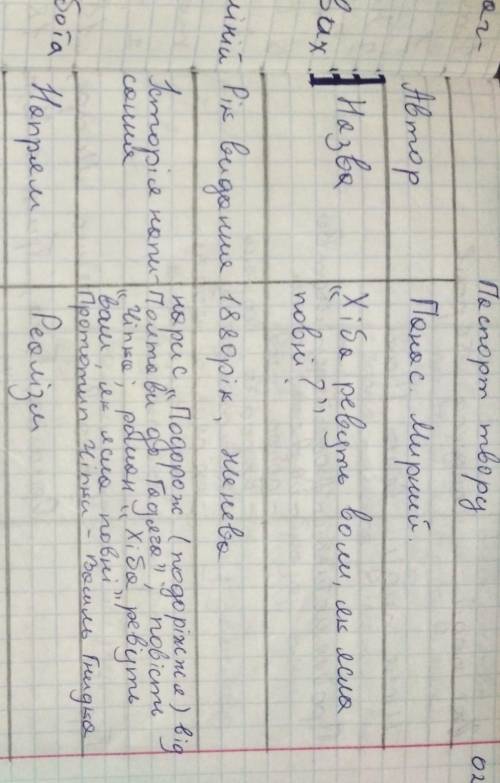 Паспорт твору
Автор
Панас Мирний.
Назва
"Хіба ревуть воли, як ясла
повні?"
Рік видання
1880рік, Женева
Історія напи-
сання
нарис "Подорож (подоріжжя) від
Полтави до Гадяча", повість
"Чіпка", роман "Хіба ревуть
воли, як ясла повні"
Прототип Чіпки - Василь Гнидка
Напрям
Реалізм
ог-
вих
мній
бота
02